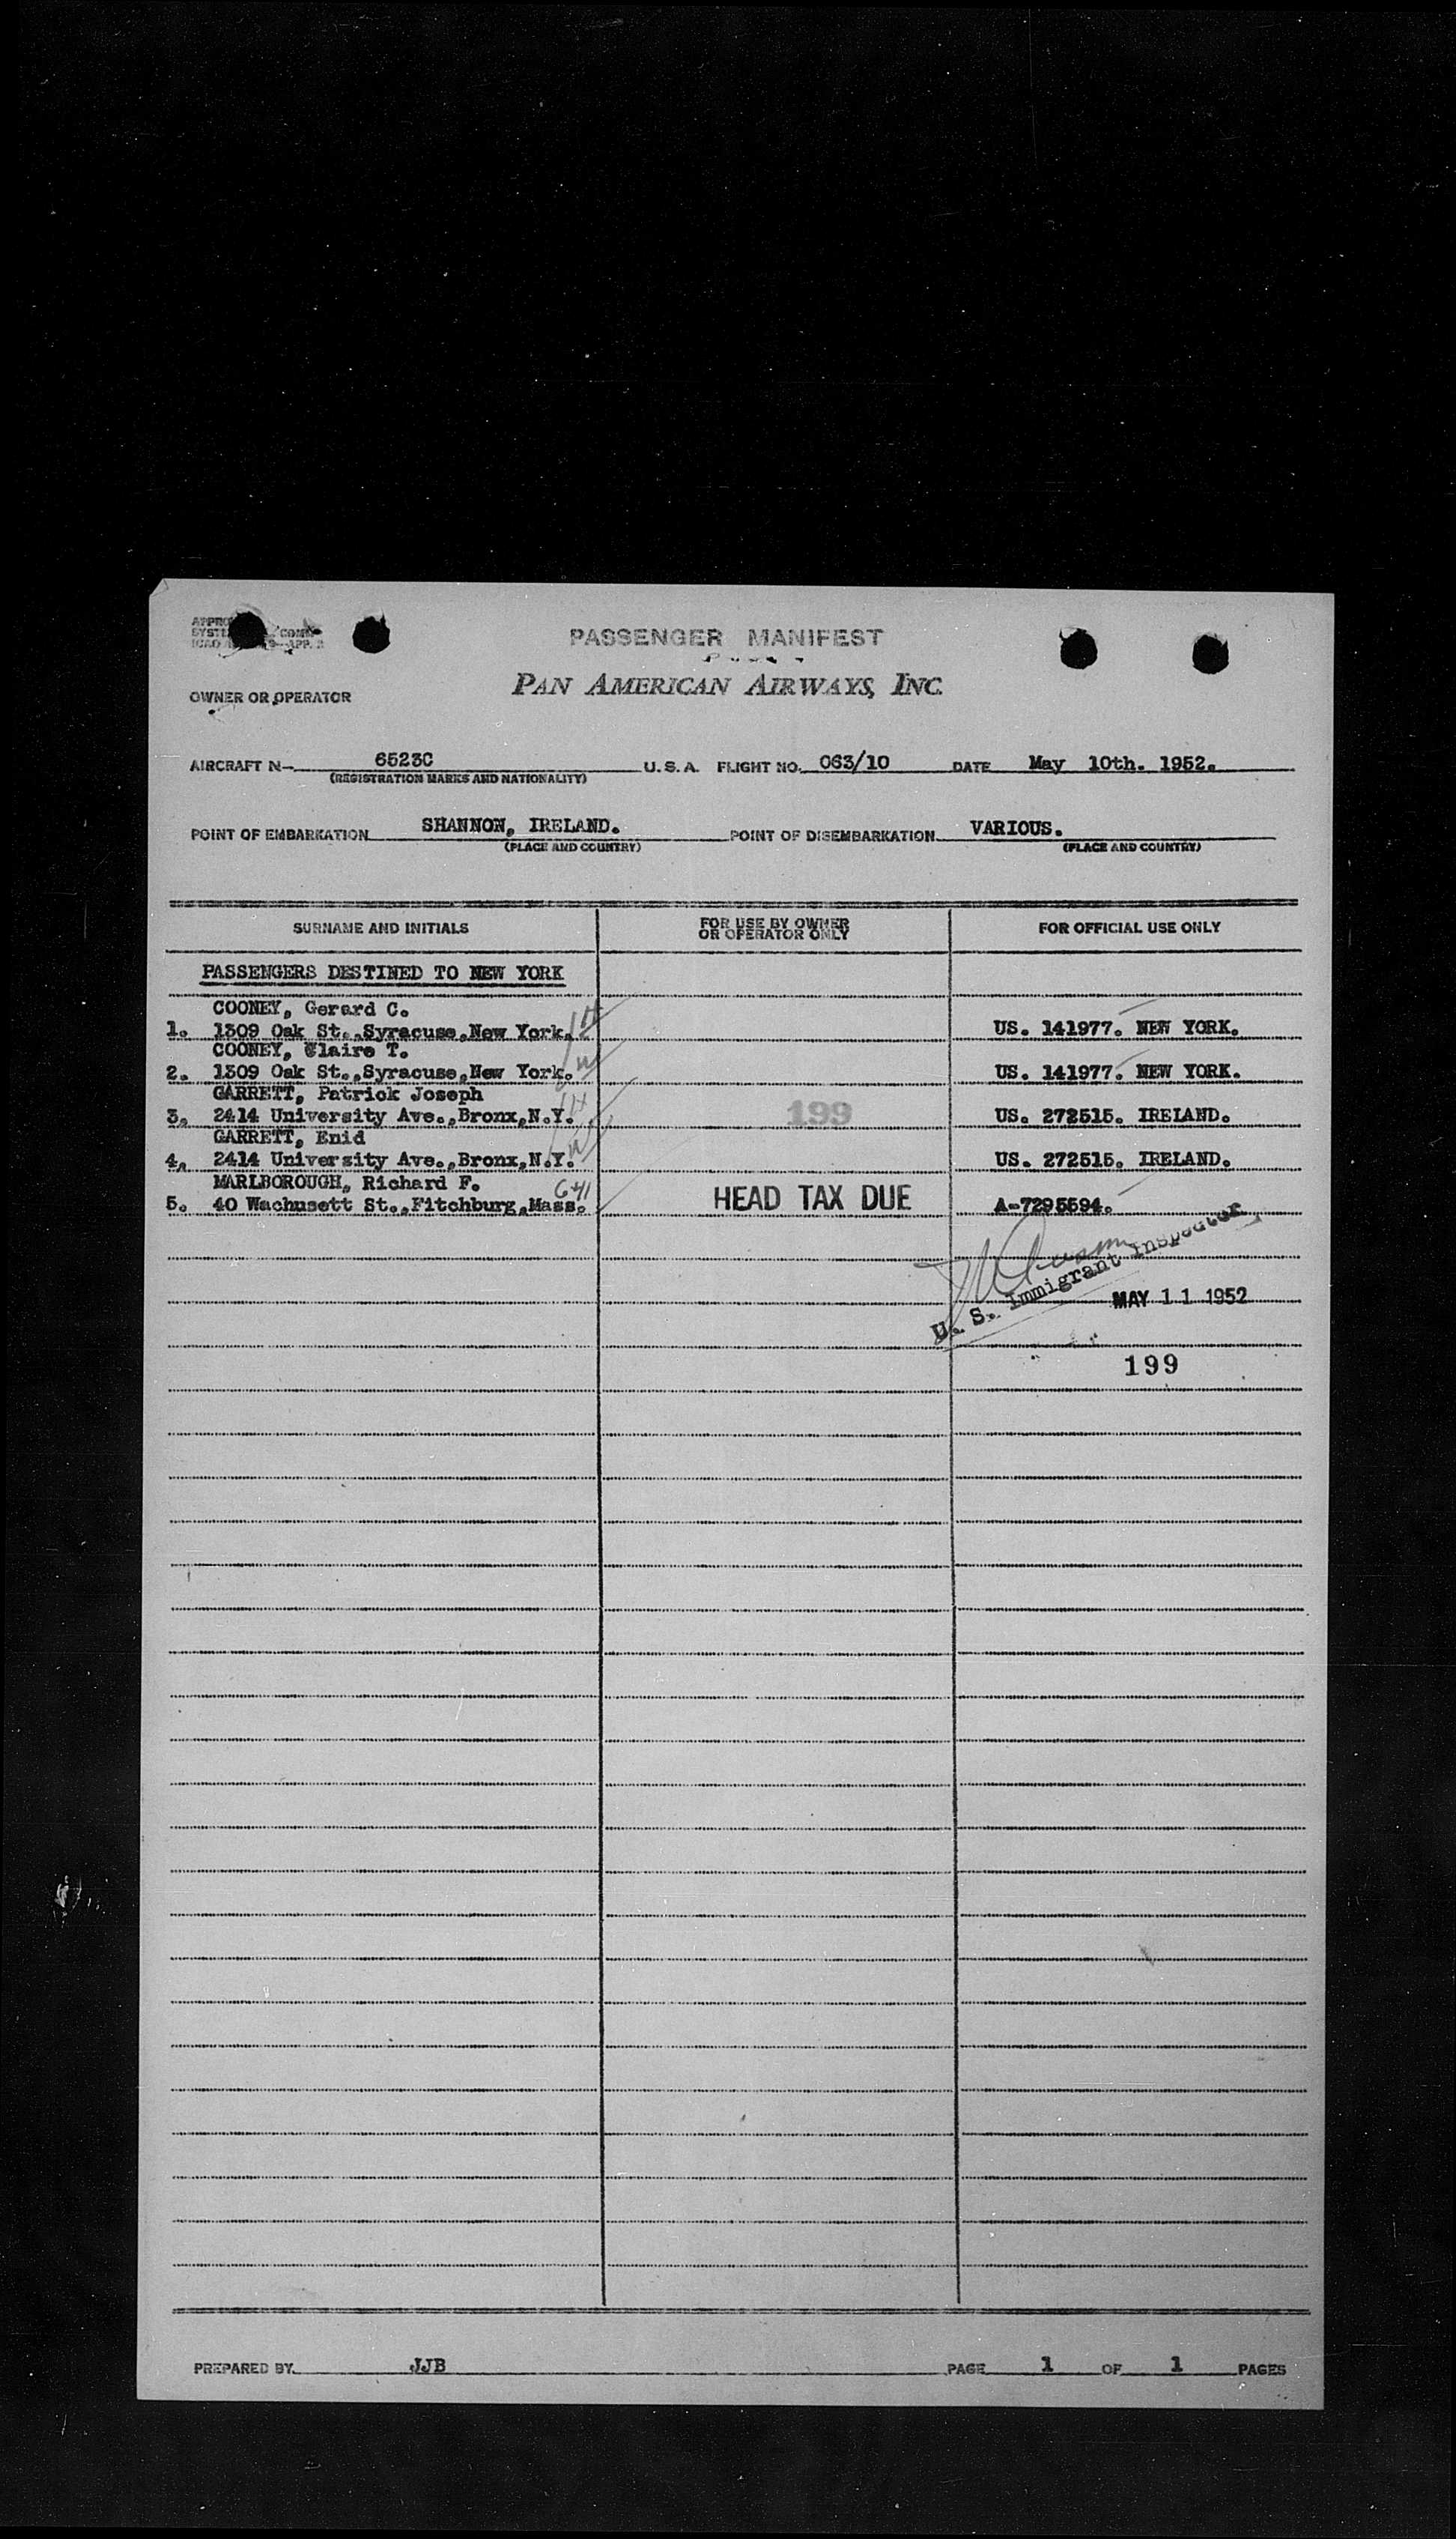 PASSENGER MANIFEST
PAN AMERICAN AIRWAYS, INC.
OWNER OR OPERATOR
AIRCRAFT N- 6523C U. S. A. FLIGHT NO. 063/10 DATE May 10th. 1952.
(REGISTRATION MARKS AND NATIONALITY)
POINT OF EMBARKATION SHANNON, IRELAND. POINT OF DISEMBARKATION VARIOUS.
(PLACE AND COUNTRY) (PLACE AND COUNTRY)
SURNAME AND INITIALS FOR USE BY OWNER OR OPERATOR ONLY FOR OFFICIAL USE ONLY
PASSENGERS DESTINED TO NEW YORK
COONEY, Gerard C.
1. 1309 Oak St.,Syracuse,New York. US. 141977. NEW YORK.
COONEY, Claire T.
2. 1309 Oak St.,Syracuse,New York. US. 141977. NEW YORK.
GARRETT, Patrick Joseph
3. 2414 University Ave.,Bronx,N.Y. 199 US. 272515. IRELAND.
GARRETT, Enid
4. 2414 University Ave.,Bronx,N.Y. US. 272515. IRELAND.
MARLBOROUGH, Richard F.
5. 40 Wachusett St.,Fitchburg,Mass. HEAD TAX DUE A-7295594.
U. S. Immigrant Inspector
MAY 11 1952
199
PREPARED BY JJB PAGE 1 OF 1 PAGES